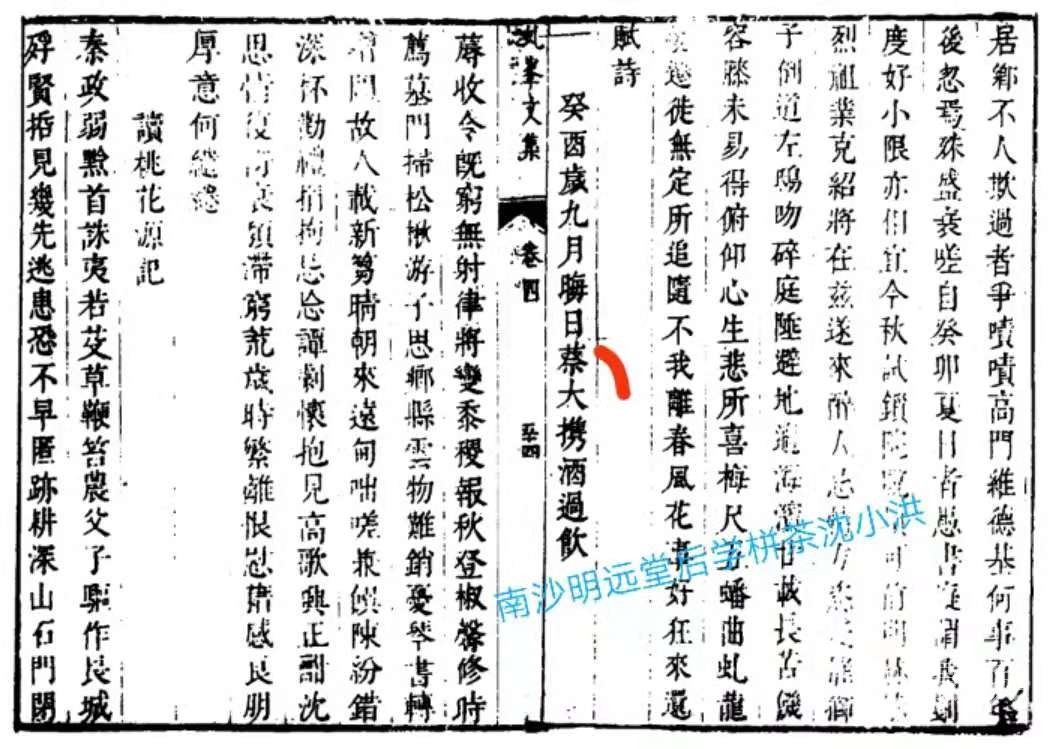 居鄉不人欺過者爭嘖嘖高門維德基何事百年
後忽焉殊盛衰嗟自癸卯夏日者愚書庭謂我
度好小限亦但宜今秋試鎖院
烈祖業克紹將在茲遂來醉人
子倒道左鴟吻碎庭陲避地過海濱廿載長苦饑
容膝未易得俯仰心生悲所喜梅尺五蟠曲虬龍
遷徙無定所追隨不我離春風花事好狂來還
賦詩
癸酉歲九月晦日蔡大携酒過飲
文集
卷四
至四
蓐收令旣窮無射律將變黍稷報秋登椒馨修時
薦墓門掃松楸游子思鄉縣雲物難銷憂琴書轉
增悶故人載新芻晴朝來遠甸咄嗟兼饌陳紛錯
深杯勸禮捐拘忌念譚劇懷抱見高歌興正酣沈
思情復滯窮荒歲時繁離恨慰藉感良朋
厚意何繾綣
讀桃花源記
秦政弱黔首誅夷若芟草鞭笞農父子驅作長城
殍賢哲見幾先逃患恐不早匿跡耕深山石門閉
南沙明远堂后学栟茶沈小洪